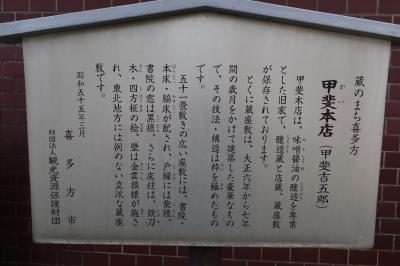 蔵のまち喜多方
甲斐本店（甲斐吉五郎）
かい
甲斐本店は、味噌醤油の醸造を専業
とした旧家で、醸造蔵と店蔵、蔵座敷
が保存されております。
とくに蔵座敷は、大正六年から七年
間の歳月をかけて建築した豪華なもの
で、その技法・構造は粋を極めたもの
です。
五十一畳敷きの広い座敷には、書院・
本床・脇床が配され、戸縁には紫檀、
書院の窓は黒檀、さらに床柱は、鉄刀
木・四方柾の桧、壁は金雲模様が施さ
れ、東北地方には例のない立派な蔵座
敷です。
昭和五十五年三月
喜多方市
財団法人観光資源保護財団